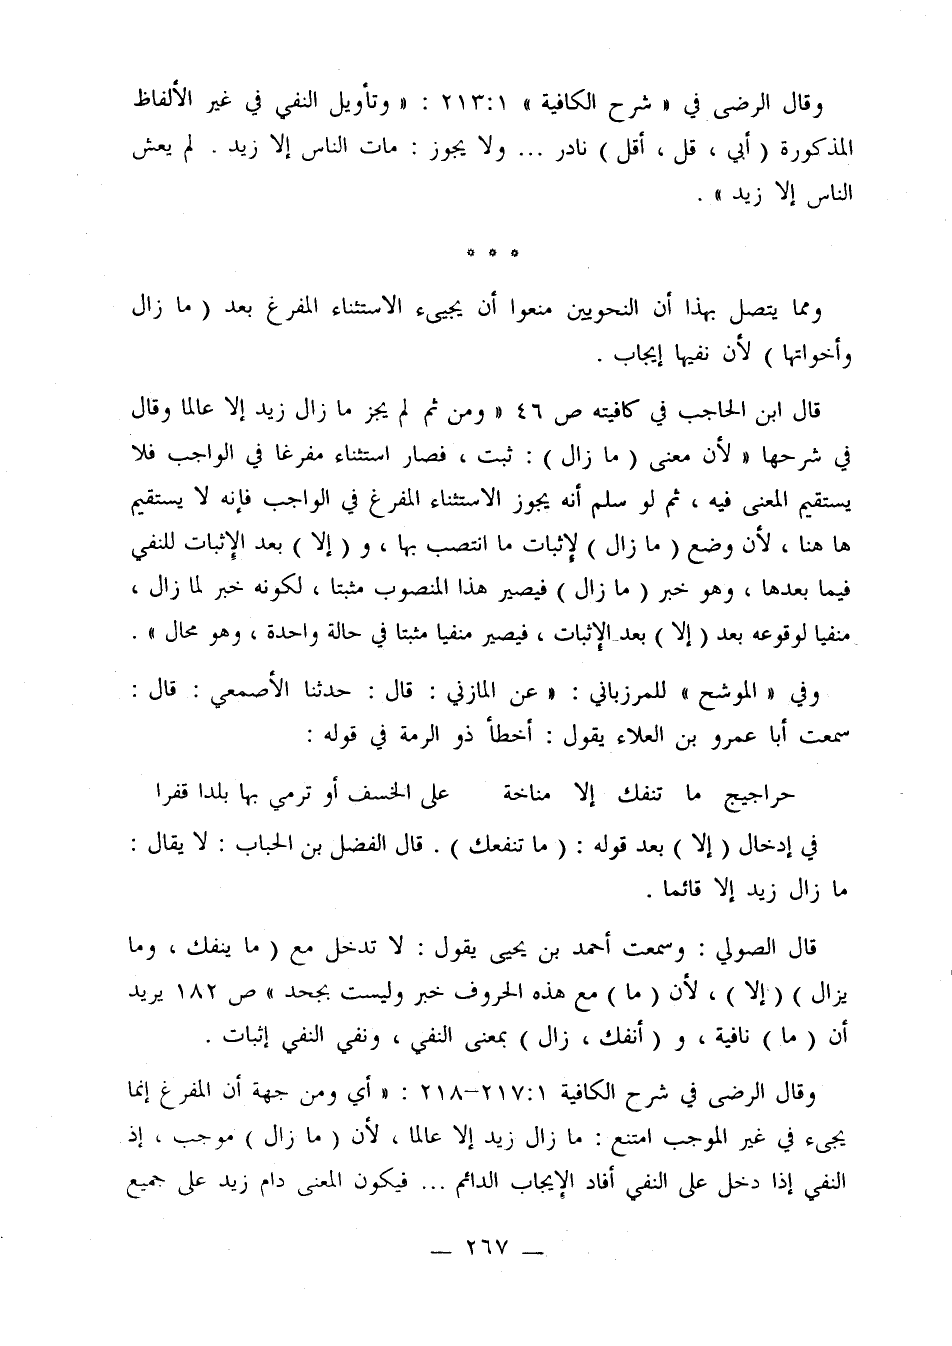 وقال الرضى في « شرح الكافية » ٢١٣:١ : « وتأويل النفي في غير الألفاظ
المذكورة ( أبي ، قل ، أقل ) نادر ... ولا يجوز : مات الناس إلا زيد . لم يعش
الناس إلا زيد » .
* * *
ومما يتصل بهذا أن النحويين منعوا أن يجيىء الاستثناء المفرغ بعد ( ما زال
وأخواتها ) لأن نفيها إيجاب .
قال ابن الحاجب في كافيته ص ٤٦ « ومن ثم لم يجز ما زال زيد إلا عالما وقال
في شرحها « لأن معنى ( ما زال ) : ثبت ، فصار استثناء مفرغا في الواجب فلا
يستقيم المعنى فيه ، ثم لو سلم أنه يجوز الاستثناء المفرغ في الواجب فإنه لا يستقيم
ها هنا ، لأن وضع ( ما زال ) لإثبات ما انتصب بها ، و ( إلا ) بعد الإثبات للنفي
فيما بعدها ، وهو خبر ( ما زال ) فيصير هذا المنصوب مثبتا ، لكونه خبر لما زال ،
منفيا لوقوعه بعد ( إلا ) بعد الإثبات ، فيصير منفيا مثبتا في حالة واحدة ، وهو محال » .
وفي « الموشح » للمرزباني : « عن المازني : قال : حدثنا الأصمعي : قال :
سمعت أبا عمرو بن العلاء يقول : أخطأ ذو الرمة في قوله :
حراجيج ما تنفك إلا مناخة على الخسف أو ترمي بها بلدا قفرا
في إدخال ( إلا ) بعد قوله : ( ما تنفعك ) . قال الفضل بن الحباب : لا يقال :
ما زال زيد إلا قائما .
قال الصولي : وسمعت أحمد بن يحيى يقول : لا تدخل مع ( ما ينفك ، وما
يزال ) ( إلا ) ، لأن ( ما ) مع هذه الحروف خبر وليست بجحد » ص ١٨٢ يريد
أن ( ما ) نافية ، و ( أنفك ، زال ) بمعنى النفي ، ونفي النفي إثبات .
وقال الرضى في شرح الكافية ٢١٧:١–٢١٨ : « أي ومن جهة أن المفرغ إنما
يجىء في غير الموجب امتنع : ما زال زيد إلا عالما ، لأن ( ما زال ) موجب ، إذ
النفي إذا دخل على النفي أفاد الإيجاب الدائم ... فيكون المعنى دام زيد على جميع
— ٢٦٧ —